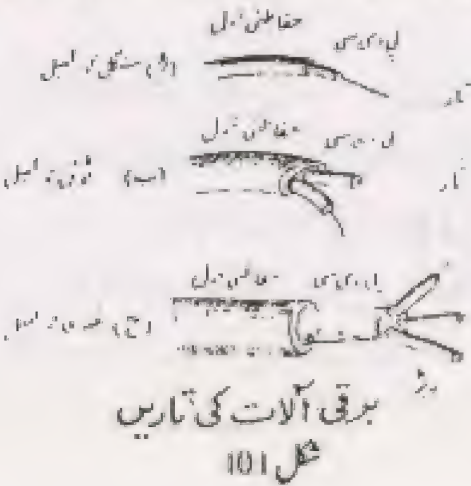 حفاظتی خول
پی وی سی
(الف) سنگل کور کیبل
تار
حفاظتی خول
پی وی سی
(ب) ٹوئن کور کیبل
تار
حفاظتی خول
پی وی سی
(ج) تھری کور کیبل
ربڑ
برقی آلات کی تاریں
شکل 101